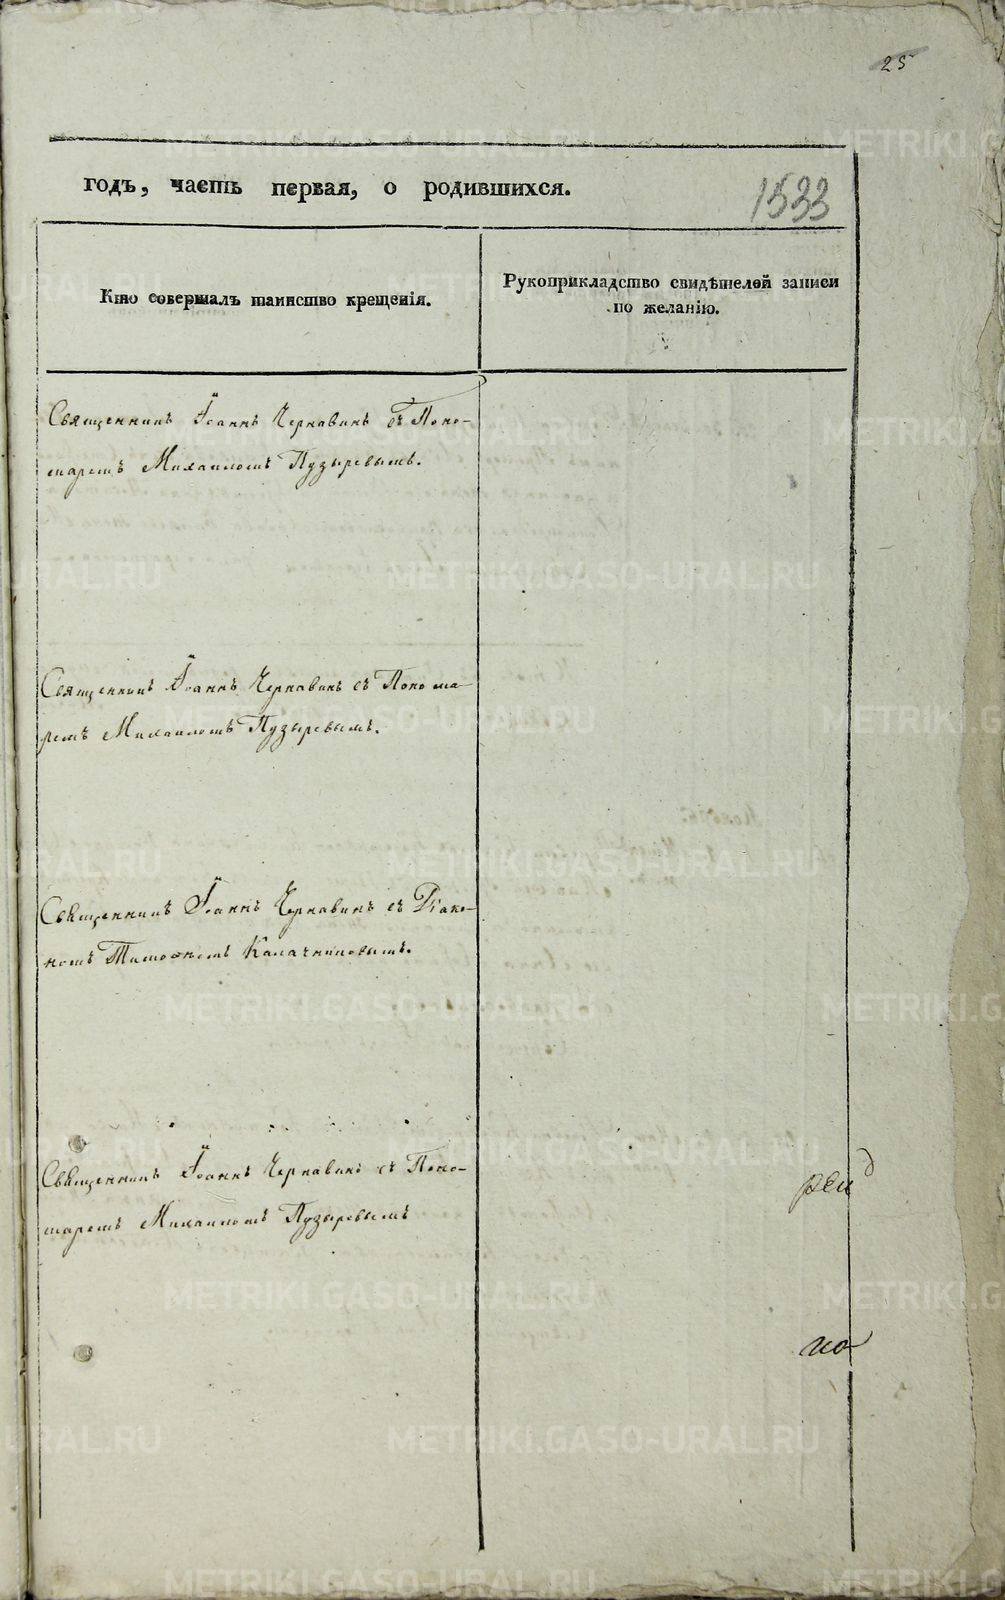 25
годъ, часть первая, о родившихся.
1533
Кто совершалъ таинство крещенія.
Рукоприкладство свидѣтелей записи
по желанію.
Священникъ Іоаннъ Чернавинъ съ Поно-
маремъ Михаиломъ Пузыревымъ.
Священникъ Іоаннъ Чернавинъ съ Понома-
ремъ Михаиломъ Пузыревымъ.
Священникъ Іоаннъ Чернавинъ съ Діако-
номъ Тимоѳеемъ Калачниковымъ.
Священникъ Іоаннъ Чернавинъ съ Поно-
маремъ Михаиломъ Пузыревымъ
но
METRIKI.GASO-URAL.RU